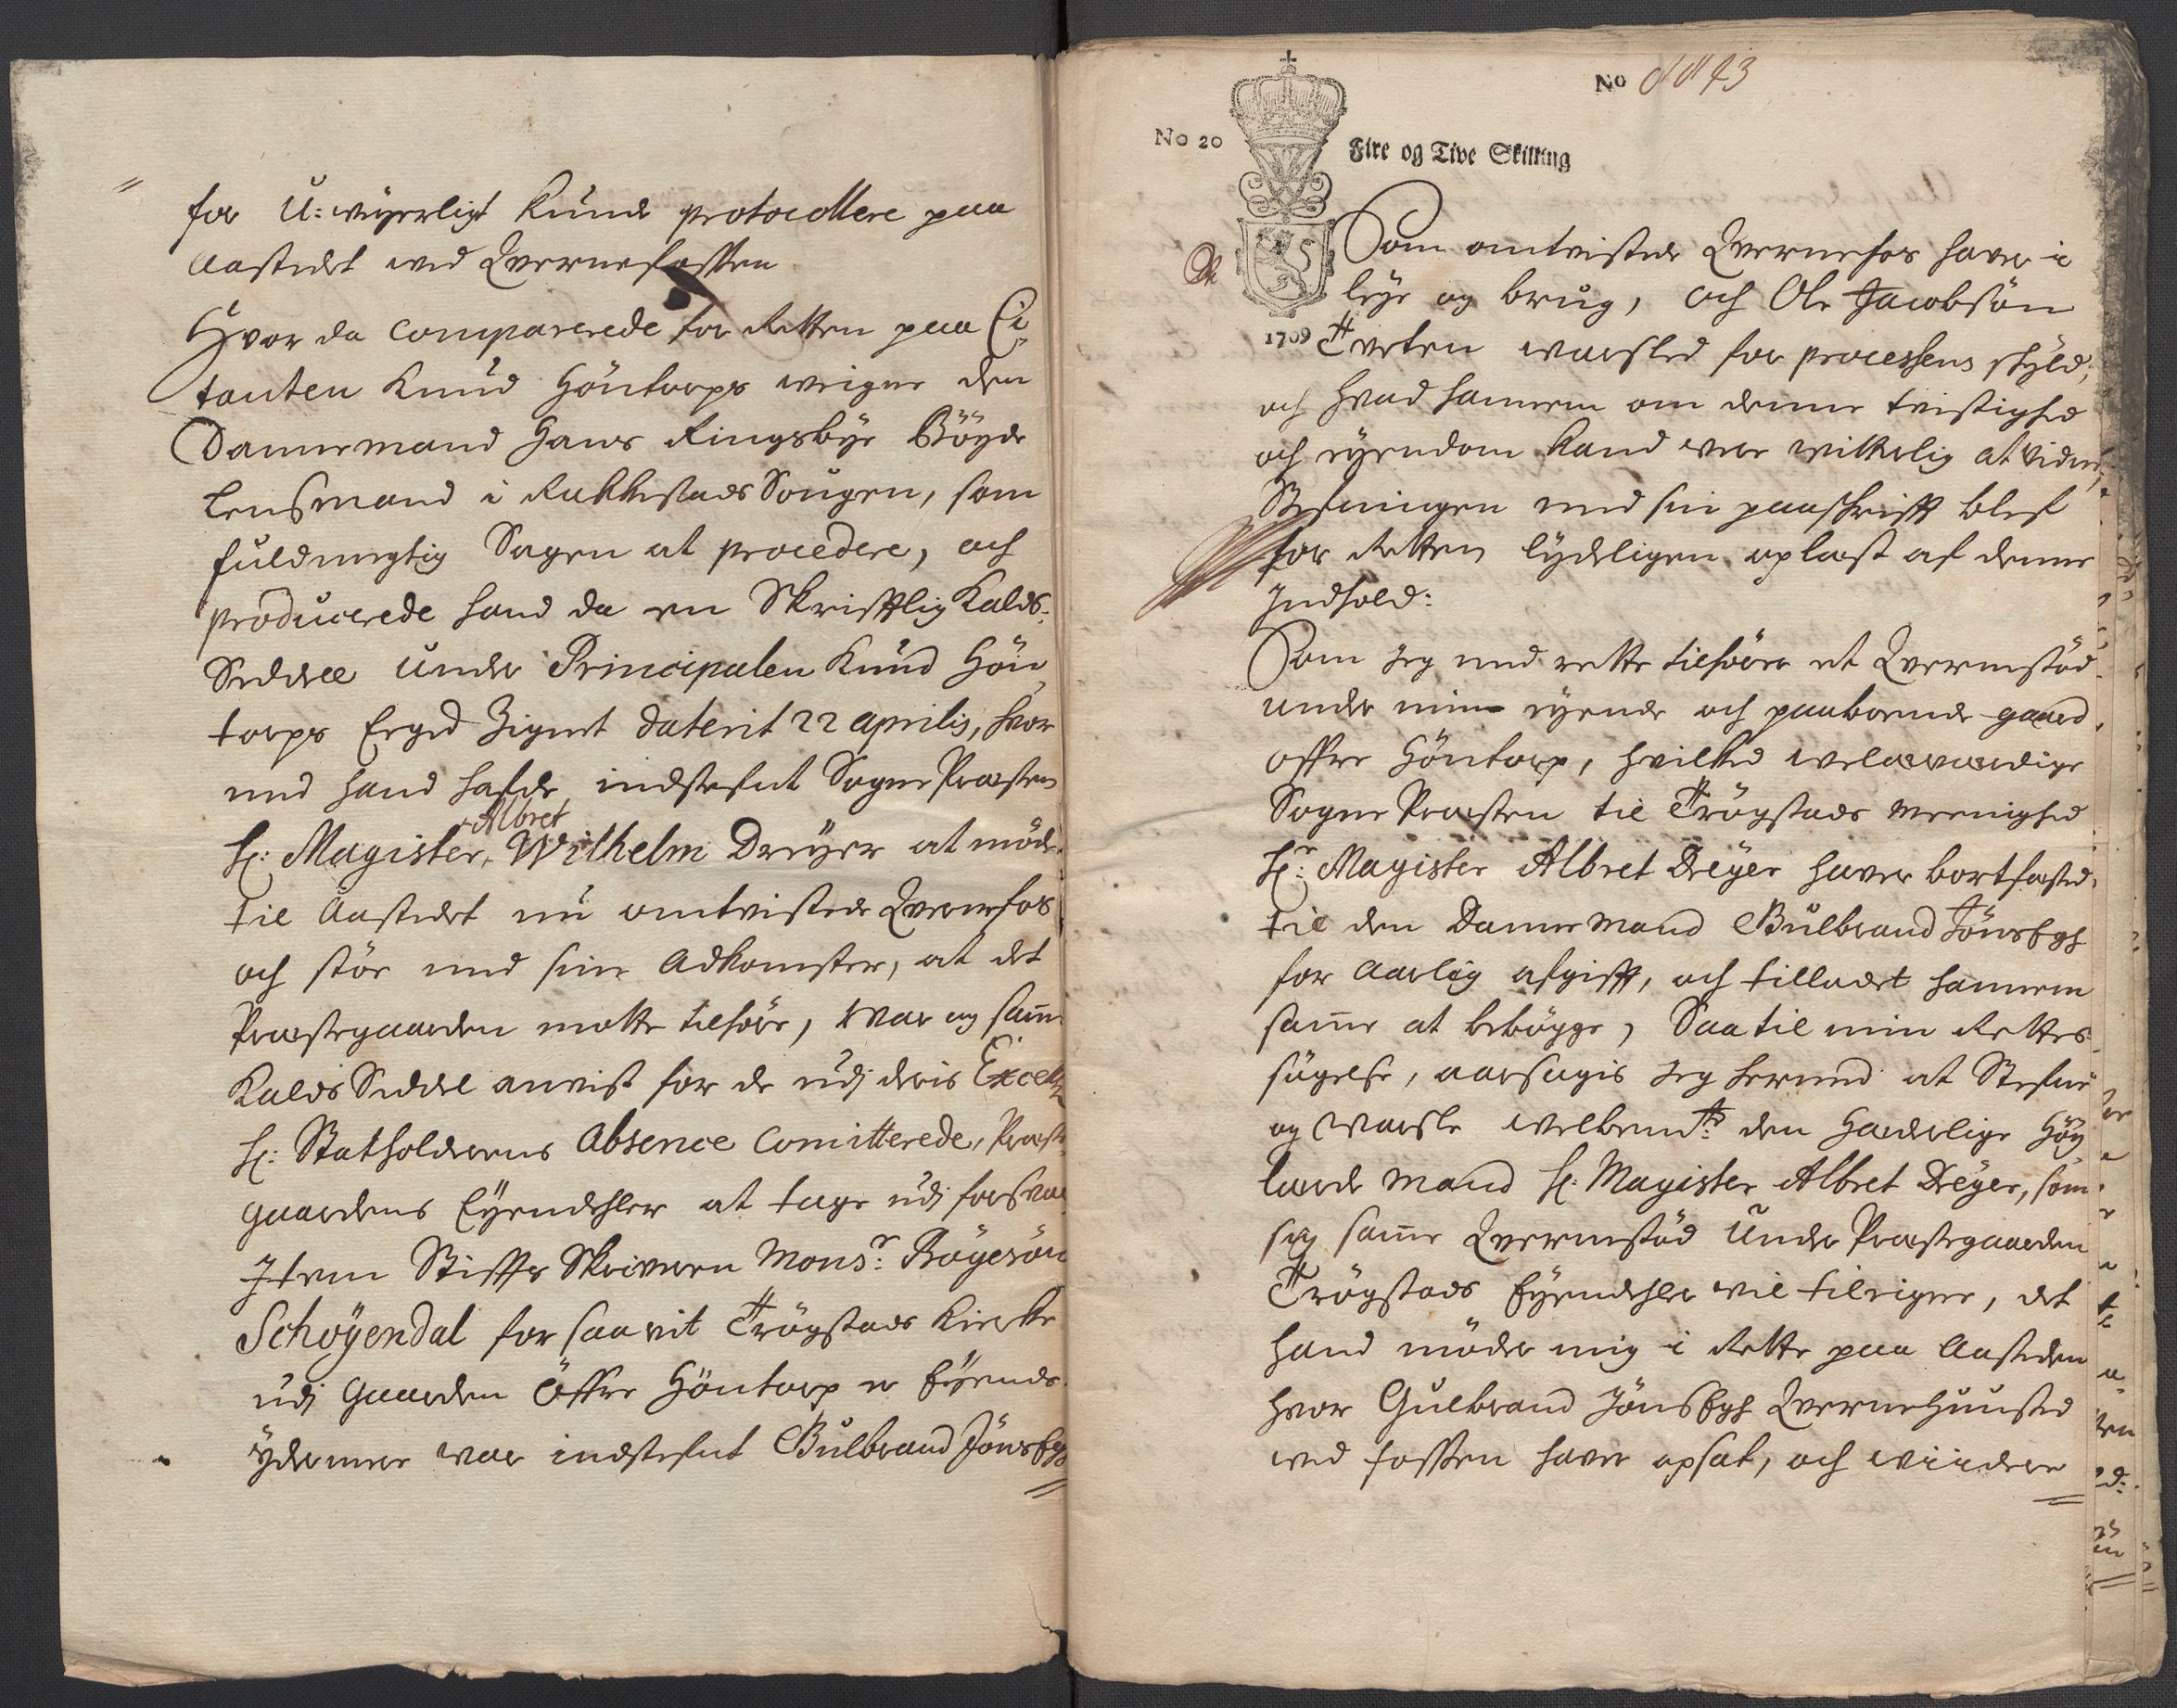 for U: wiyerligt kunde protocollere paa
Aastedet wed Qvernefossen
Hvor da comparerede for Retten paa Ci„
tanten Knud Höntorps weigne den
Dannemand Hans Ringsbye Böyde
Lensmand i Rakkestads Sougen, som
fuldmegtig Sagen at procedere, och
producerede hand da en Skrifftlig Kalds:
Seddel under Principalen Knud Hön„
torps Eiged Zignet daterit 22 aprilis, hvor
med hand hafde indstefnt Sogne Præsten
Albret
Hr: Magister, Wilhelm Dreyer at möde
til Aastedet nu omtvistede Qvernefos
och stöe med sine Adkomster, at det
Præstegaarden motte tilhöre, war og samme
Kalds Seddel anvist for de udj deris Excell
Hr: Statholderens Absence Comitterede, Præste
gaardens Eyendehler at tage udj forsvar
Item Stiffts Skriveren Mons:r Böyesön
Schöyendal for saavit Trögstads Kirke
udj gaarden Öffre Höntorp er Eyende.
ydermere war indstefnt Gulbrand Jönsbye
No 1843
No 20
Fire og Tive Skilling
1709
Som omtvistede Qvernefos haver i
leye og brug, och Ole Jacobsön
Tveten warsled for processens skyld;
och hvad hannem om denne tvistighed
och eyendom kand were witterlig at vidne,
Stefningen med sin paaschrifft blef
for Retten lydeligen oplæst af denne
Indhold:
Som jeg med rette tilhörer et Qvernstöd
under min eyende och paaboende gaard
öffre Höntorp, hvilked welærværdige
Sogne Præsten til Trögstads Meenighed
Hr: Magister Albret Dreyer haver bortfæsted
til den Dannemand Gulbrand Jönsbye
for Aarlig afgifft, och tilladet hannem
samme at bebögge, Saa til min Rettes
sögelse, aarsagis jeg hermed at Stefne
og Warsle welbemte: den Hæderlige Höy
lærde Mand Hr: Magister Albret Dreyer, som
sig samme Qvernstöd under Præstegaarden
Trögstads Eyendehler wil tileigne, det
hand möder mig i Rette paa Aasteden
hvor Gulbrand Jönsbye Qvernehuused
wed fossen haver opsat, och widere